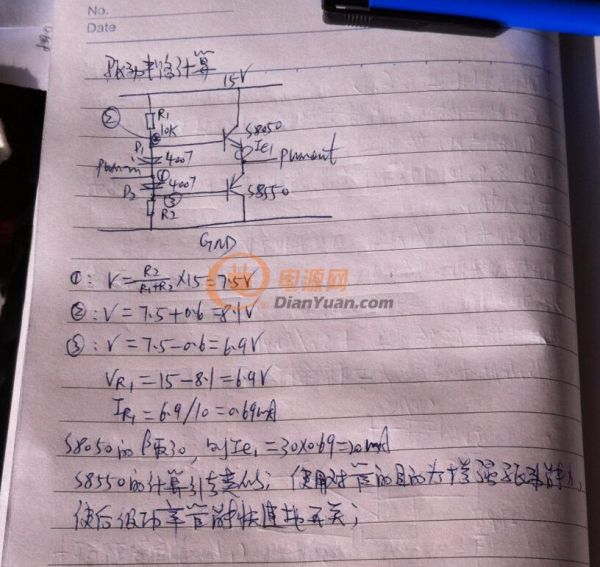 No.
Date
驱动电路计算
15V
②
R1
10K
S8050
P1
4007
Ie1
pwmin
pwmout
①
4007
P2
③
S8550
R2
GND
①: V=R2/(R1+R2)×15=7.5V
电源网
DianYuan.com
②: V=7.5+0.6=8.1V
③: V=7.5-0.6=6.9V
VR1=15-8.1=6.9V
IR1=6.9/10=0.69mA
S8050的β取30, 则Ie1=30×0.69=20mA
S8550的计算与类似; 使用对管的目的为了增强驱动能力,
使后级功率管能快速地开关;